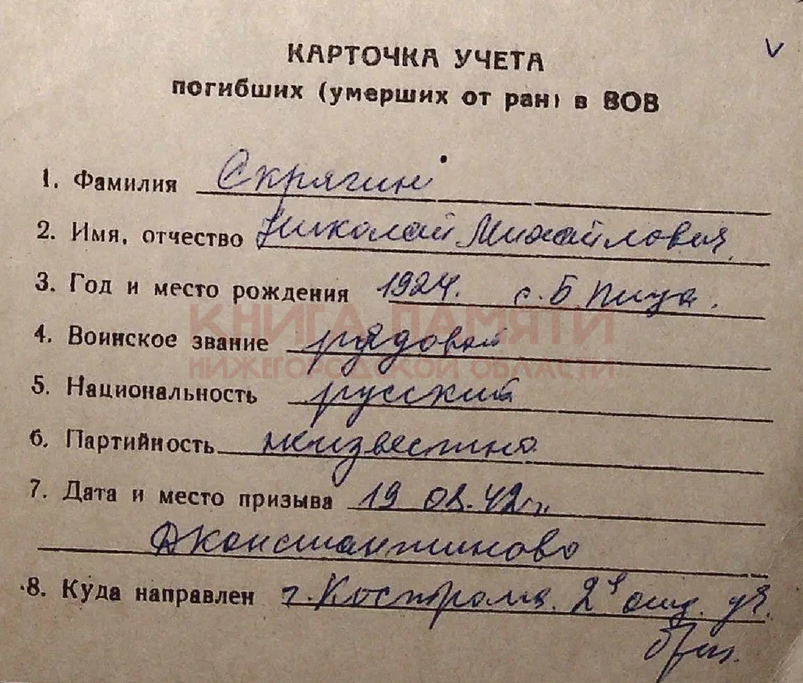 КАРТОЧКА УЧЕТА
погибших (умерших от ран) в ВОВ
1. Фамилия Скрягин
2. Имя, отчество Николай Михайлович
3. Год и место рождения 1924. с. Б Пица.
КНИГА ПАМЯТИ
4. Воинское звание рядовой
НИЖЕГОРОДСКОЙ ОБЛАСТИ
5. Национальность русский
6. Партийность неизвестно
7. Дата и место призыва 19 08.42 г.
Дконстантиново
8. Куда направлен г. Кострома. 2